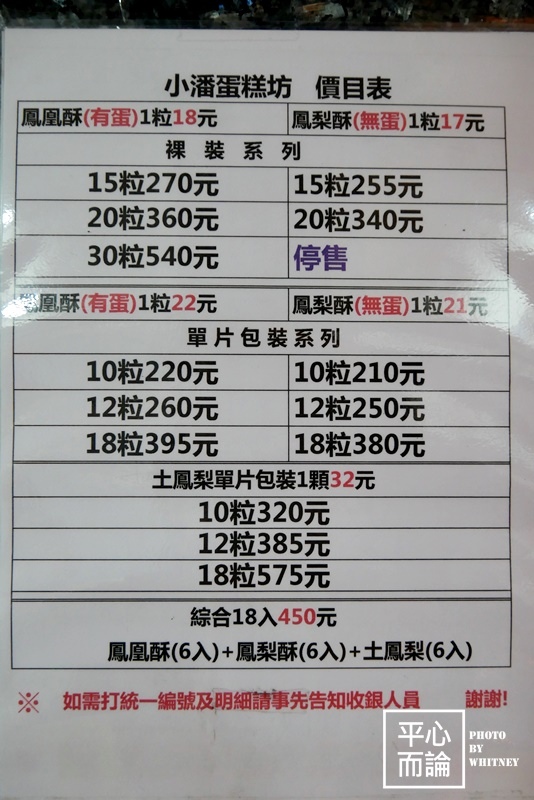 小潘蛋糕坊 價目表
鳳凰酥(有蛋)1粒18元 鳳梨酥(無蛋)1粒17元
裸裝系列
15粒270元 15粒255元
20粒360元 20粒340元
30粒540元 停售
鳳凰酥(有蛋)1粒22元 鳳梨酥(無蛋)1粒21元
單片包裝系列
10粒220元 10粒210元
12粒260元 12粒250元
18粒395元 18粒380元
土鳳梨單片包裝1顆32元
10粒320元
12粒385元
18粒575元
綜合18入450元
鳳凰酥(6入)+鳳梨酥(6入)+土鳳梨(6入)
※ 如需打統一編號及明細請事先告知收銀人員 謝謝!
平心而論
PHOTO
BY
WHITNEY